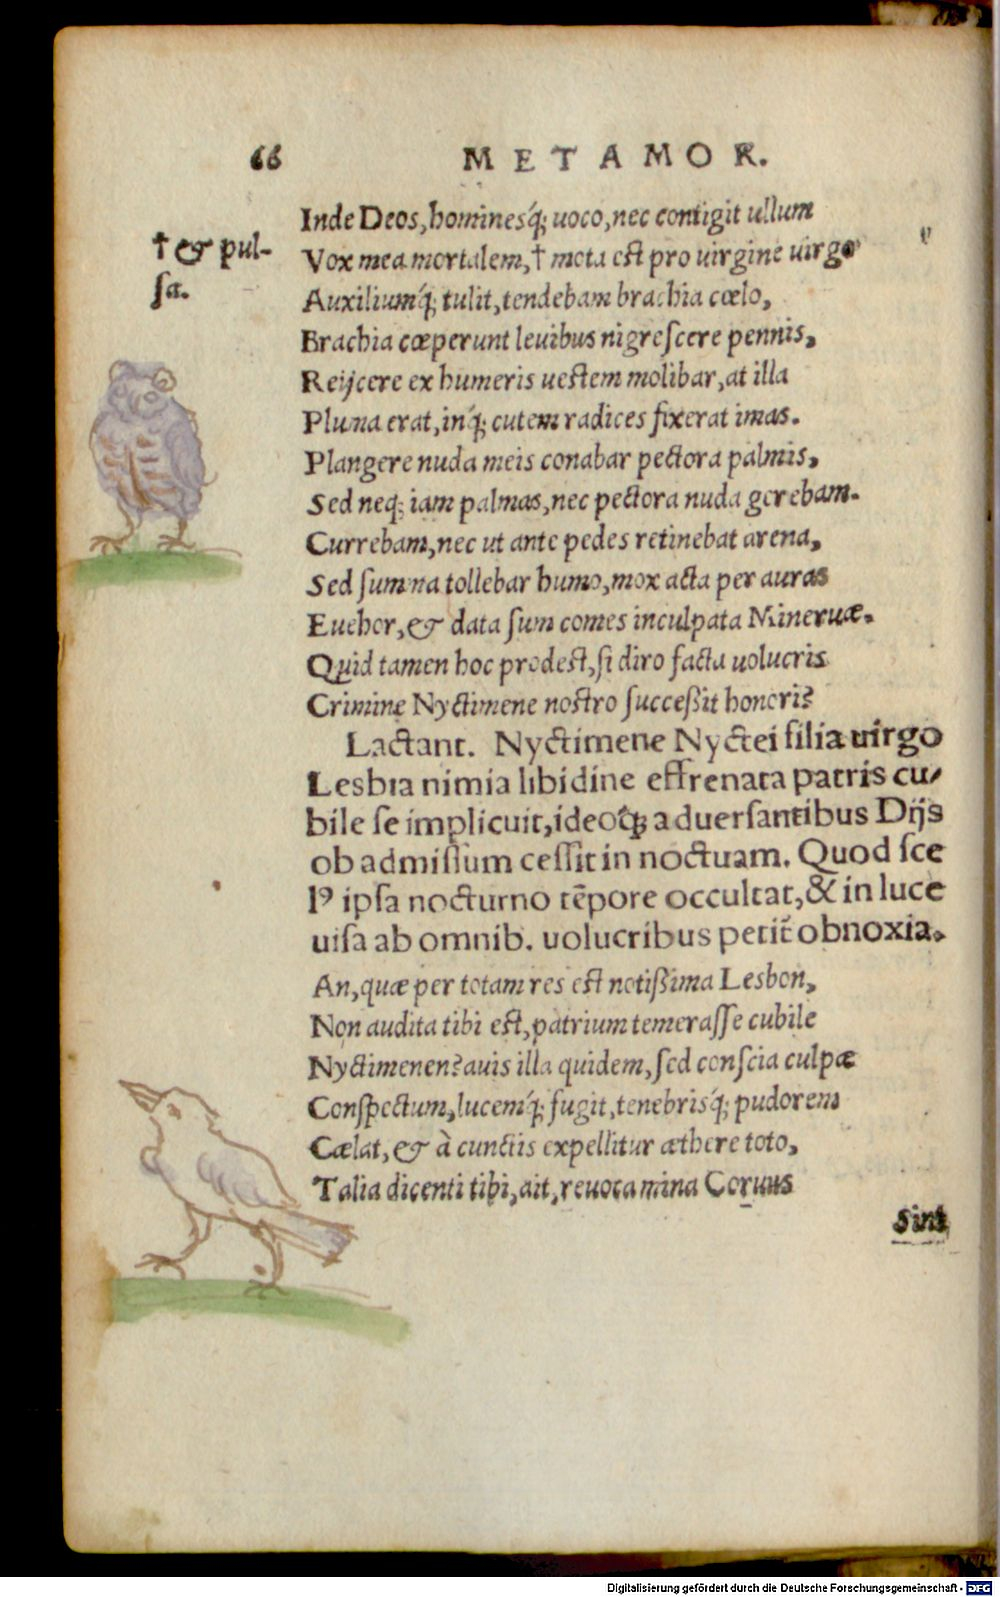 66 METAMOR.
Inde Deos, hominesq́; uoco, nec contigit ullum
† & pul-
sa.
Vox mea mortalem, † mota est pro uirgine uirgo
Auxiliumq́; tulit, tendebam brachia cœlo,
Brachia cœperunt leuibus nigrescere pennis,
Reijcere ex humeris uestem molibar, at illa
Pluma erat, inq́; cutem radices fixerat imas.
Plangere nuda meis conabar pectora palmis,
Sed neq; iam palmas, nec pectora nuda gerebam.
Currebam, nec ut ante pedes retinebat arena,
Sed summa tollebar humo, mox acta per auras
Euehor, & data sum comes inculpata Mineruæ.
Quid tamen hoc prodest, si diro facta uolucris
Crimine Nyctimene nostro successit honori?
Lactant. Nyctimene Nyctei filia uirgo
Lesbia nimia libidine effrenata patris cu/
bile se implicuit, ideoq́; aduersantibus Dijs
ob admissum cessit in noctuam. Quod sce
lꝰ ipsa nocturno tēpore occultat, & in luce
uisa ab omnib. uolucribus petit̃ obnoxia.
An, quæ per totam res est notissima Lesbon,
Non audita tibi est, patrium temerasse cubile
Nyctimenen? auis illa quidem, sed conscia culpæ
Conspectum, lucemq́; fugit, tenebrisq́; pudorem
Cælat, & à cunctis expellitur æthere toto,
Talia dicenti tibi, ait, reuocamina Coruus
Sint
Digitalisierung gefördert durch die Deutsche Forschungsgemeinschaft - DFG